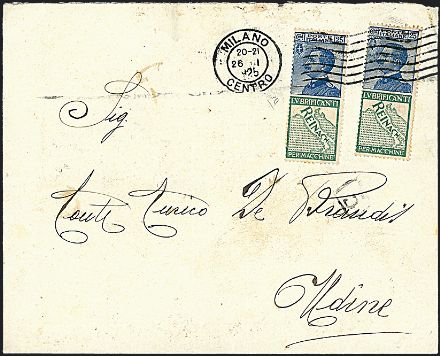 MILANO
20-21
26 I
925
CENTRO
LVBRIFICANTI
REINACH
PER MACCHINE
LVBRIFICANTI
REINACH
PER MACCHINE
Sig
Conte Enrico De Brandis
Udine